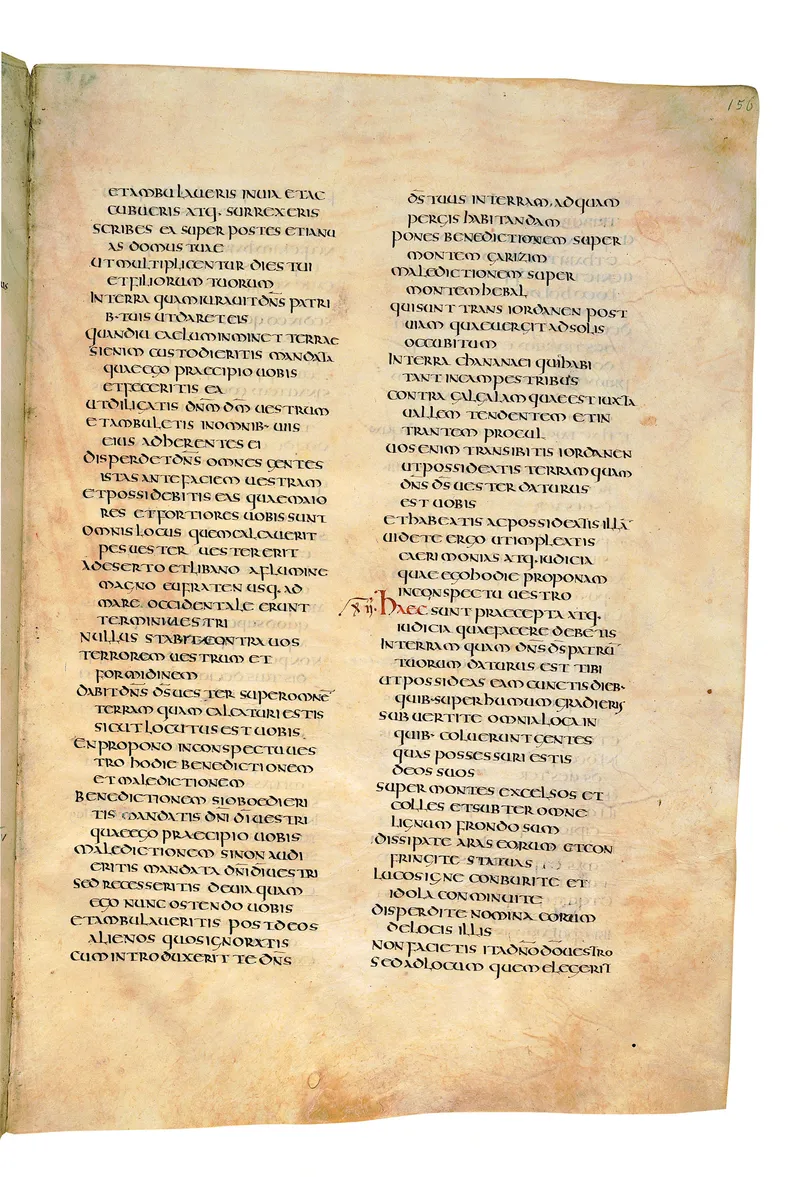 156
ETAMBULAUERIS INUIA ETAC
CUBUERIS ATQ· SURREXERIS
SCRIBES EA SUPER POSTES ETIANU
AS DOMUS TUAE
UTMULTIPLICENTUR DIES TUI
ETFILIORUM TUORUM
INTERRA QUAMIURAUIT DN̄S PATRI
B·TUIS UTDARET EIS
QUANDIU CAELUMINMINET TERRAE
SIENIM CUSTODIERITIS MANDATA
QUAEEGO PRAECIPIO UOBIS
ETFECERITIS EA
UTDILIGATIS DN̄M DM̄ UESTRUM
ETAMBULETIS INOMNIB· UIIS
EIUS ADHERENTES EI
DISPERDET DN̄S OMNES GENTES
ISTAS ANTEFACIEM UESTRAM
ETPOSSIDEBITIS EAS QUAEMAIO
RES ETFORTIORES UOBIS SUNT
OMNIS LOCUS QUEMCALCAUERIT
PES UESTER UESTER ERIT
ADESERTO ETLIBANO AFLUMINE
MAGNO EUFRATEN USQ· AD
MARE OCCIDENTALE ERUNT
TERMINI UESTRI
NULLUS STABIT CONTRA UOS
TERROREM UESTRUM ET
FORMIDINEM
DABIT DN̄S DS̄ UESTER SUPEROMNĒ
TERRAM QUAM CALCATURI ESTIS
SICUT LOCUTUS EST UOBIS
EN PROPONO INCONSPECTU UES
TRO HODIE BENEDICTIONEM
ET MALEDICTIONEM
BENEDICTIONEM SI OBOEDIERI
TIS MANDATIS DN̄I DĪ UESTRI
QUAEEGO PRAECIPIO UOBIS
MALEDICTIONEM SINON AUDI
ERITIS MANDATA DN̄I DĪ UESTRI
SED RECESSERITIS DEUIA QUAM
EGO NUNC OSTENDO UOBIS
ETAMBULAUERITIS POST DEOS
ALIENOS QUOS IGNORATIS
CUM INTRODUXERIT TE DN̄S
DS̄ TUUS IN TERRAM, AD QUAM
PERGIS HABITANDAM
PONES BENEDICTIONEM SUPER
MONTEM GARIZIM
MALEDICTIONEM SUPER
MONTEM HEBAL
QUI SUNT TRANS IORDANEN POST
UIAM QUAE UERGIT AD SOLIS
OCCUBITUM
IN TERRA CHANANAEI QUI HABI
TANT IN CAMPESTRIBUS
CONTRA GALGALAM QUAE EST IUXTA
UALLEM TENDENTEM ET IN
TRANTEM PROCUL
UOS ENIM TRANSIBITIS IORDANEN
UT POSSIDEATIS TERRAM QUAM
DN̄S DS̄ UESTER DATURUS
EST UOBIS
ET HABEATIS AC POSSIDEATIS ILLĀ
UIDETE ERGO UT IMPLEATIS
CAERIMONIAS ATQ· IUDICIA
QUAE EGO HODIE PROPONAM
IN CONSPECTU UESTRO
XII· HAEC SUNT PRAECEPTA ATQ·
IUDICIA QUAE FACERE DEBETIS
IN TERRAM QUAM DN̄S DS̄ PATRŪ
TUORUM DATURUS EST TIBI
UT POSSIDEAS EAM CUNCTIS DIEB·
QUIB· SUPER HUMUM GRADIERIS
SUBUERTITE OMNIA LOCA IN
QUIB· COLUERUNT GENTES
QUAS POSSESSURI ESTIS
DEOS SUOS
SUPER MONTES EXCELSOS ET
COLLES ET SUBTER OMNE
LIGNUM FRONDOSUM
DISSIPATE ARAS EORUM ET CON
FRINGITE STATUAS
LUCOS IGNE CONBURITE ET
IDOLA CONMINUITE
DISPERDITE NOMINA EORUM
DE LOCIS ILLIS
NON FACIETIS ITA DN̄O DŌ UESTRO
SED AD LOCUM QUEM ELEGERIT